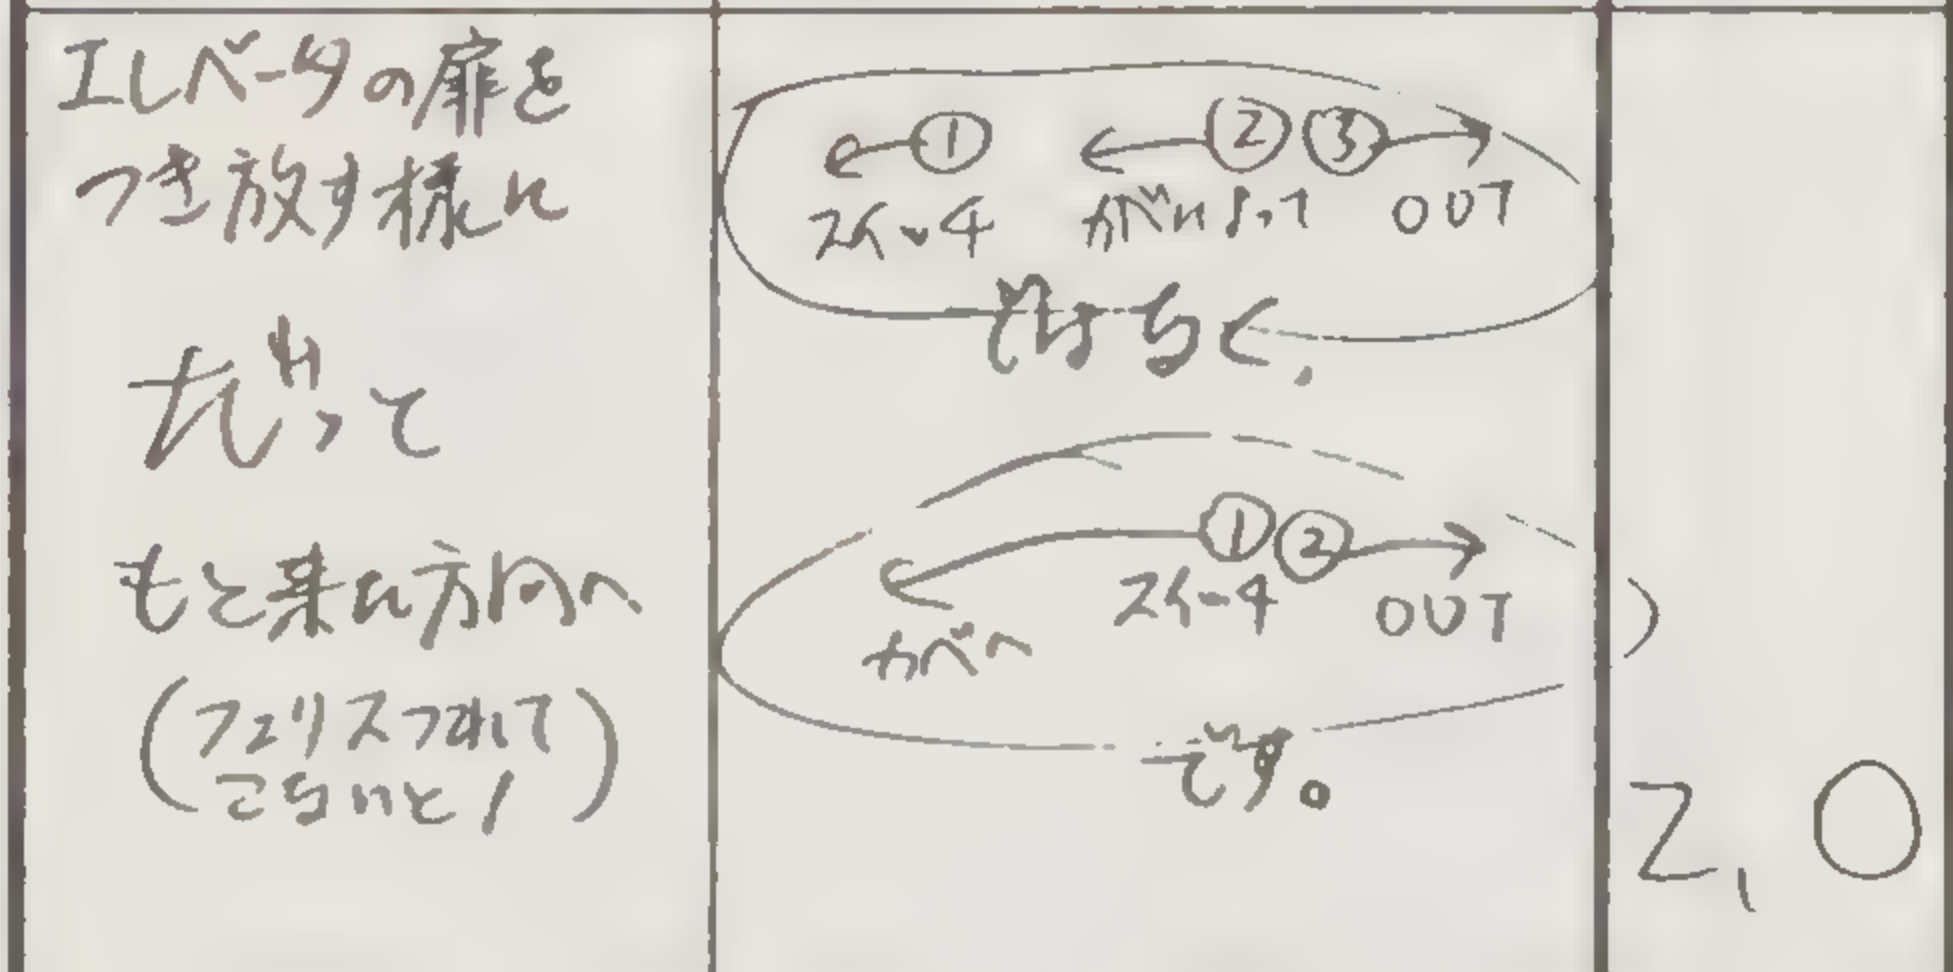 エレベータの扉を
つき放す様に
だって
もと来た方向へ
(フェリスつれて
こないと!)
① ② ③
スイーイ ガベによって OUT
ではなく、
① ②
スイーイ カベへ OUT
です。
)
2,0